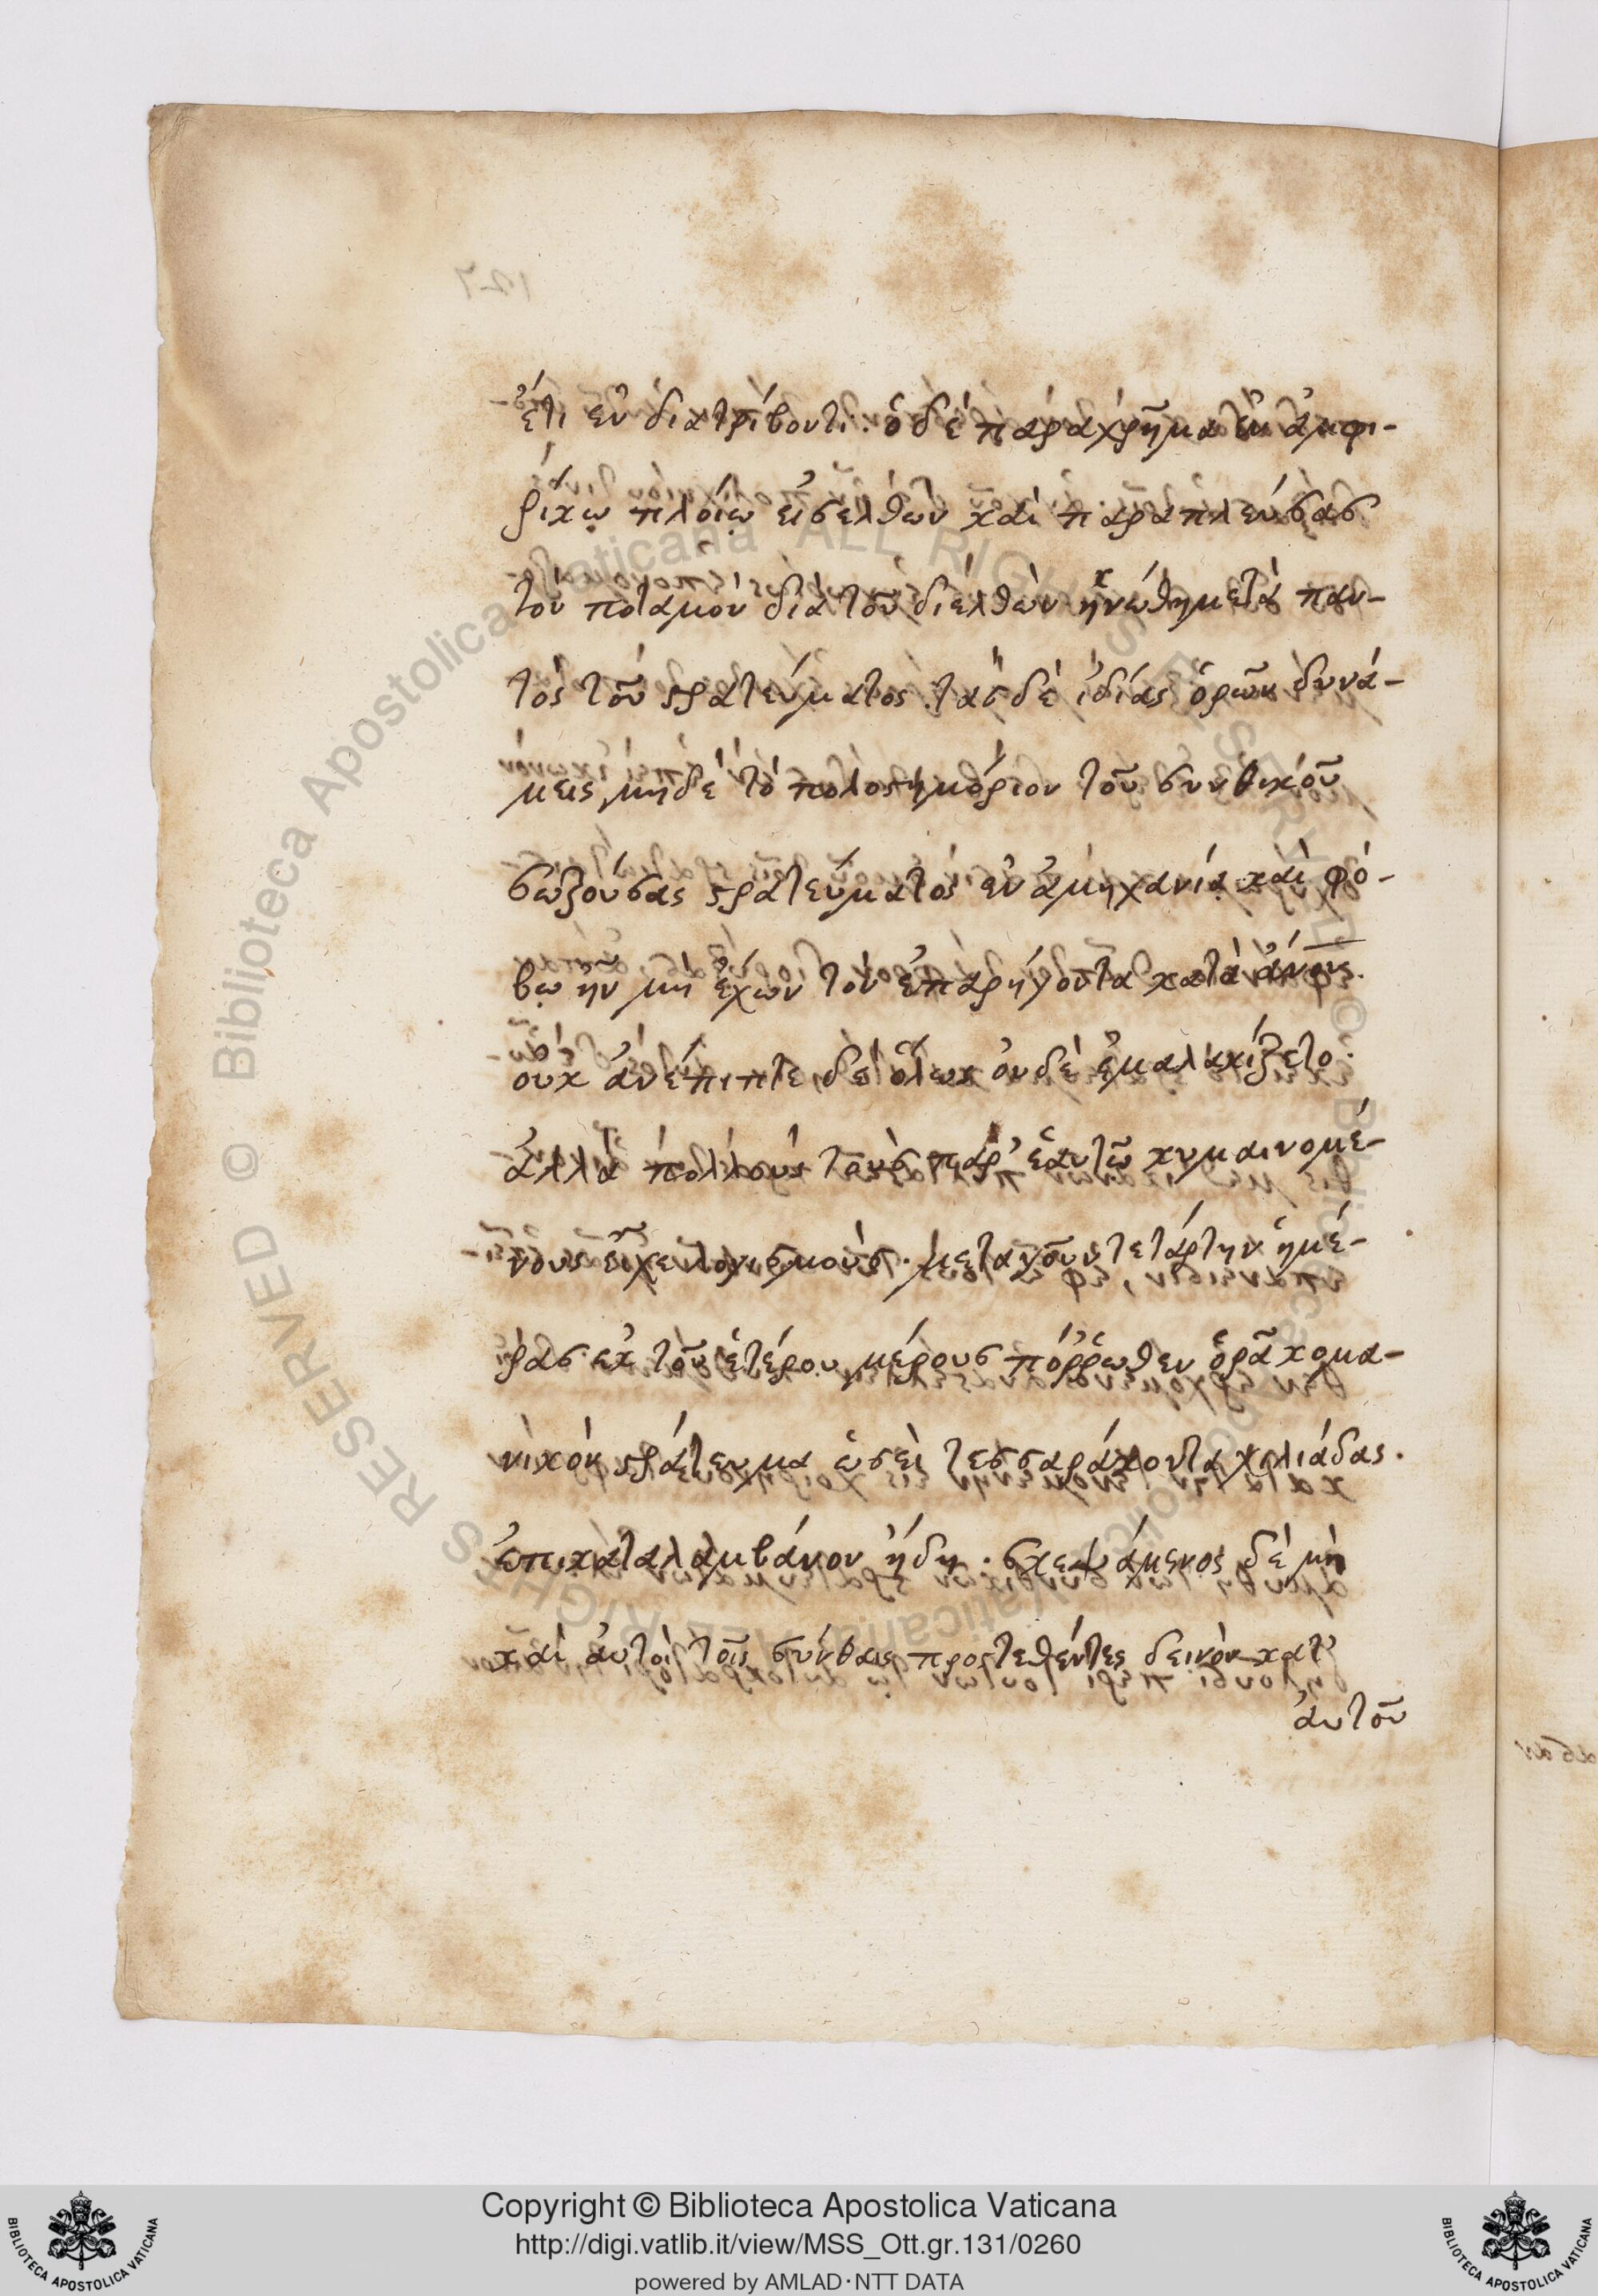 ἔτι ἐν διατρίβοντι. ὁ δὲ παραχρῆμα ἐν ἀμφι-
ρίκῳ πλοίῳ εἰσελθὼν καὶ παραπλεύσας
τὸν ποταμὸν διὰ τοῦ διελθὼν ἡνώθη μετὰ παν-
τὸς τοῦ στρατεύματος. τὰς δὲ ἰδίας ὁρῶν δυνά-
μεις μηδὲ τὸ πολοστημόριον τοῦ σκυθικοῦ
σωζούσας στρατεύματος ἐν ἀμηχανίᾳ καὶ φό-
βῳ ἦν μὴ ἔχων τὸν ἐπαρήγοντα κατὰ ἄνους.
οὐκ ἀνέπιπτε δὲ ὅλως οὐδὲ ἐμαλακίζετο.
ἀλλὰ πολλοὺς τοὺς παρ' ἑαυτῷ κυμαινομέ-
νους εἶχε λογισμούς. μετὰ γοῦν τετάρτην ἡμέ-
ρας ἐκ τοῦ ἑτέρου μέρους πόῤῥωθεν ὁρᾷ κομα-
νικὸν στράτευμα ὡσεὶ τεσσαράκοντα χιλιάδας.
ἐπικαταλαμβάνον ἤδη. σκεψάμενος δὲ μὴ
καὶ αὐτοὶ τοῖς σκύθαις προστεθέντες δεινὸν κατ'
αὐτοῦ
127
Copyright © Biblioteca Apostolica Vaticana
http://digi.vatlib.it/view/MSS_Ott.gr.131/0260
powered by AMLAD·NTT DATA
BIBLIOTECA APOSTOLICA VATICANA
BIBLIOTECA APOSTOLICA VATICANA